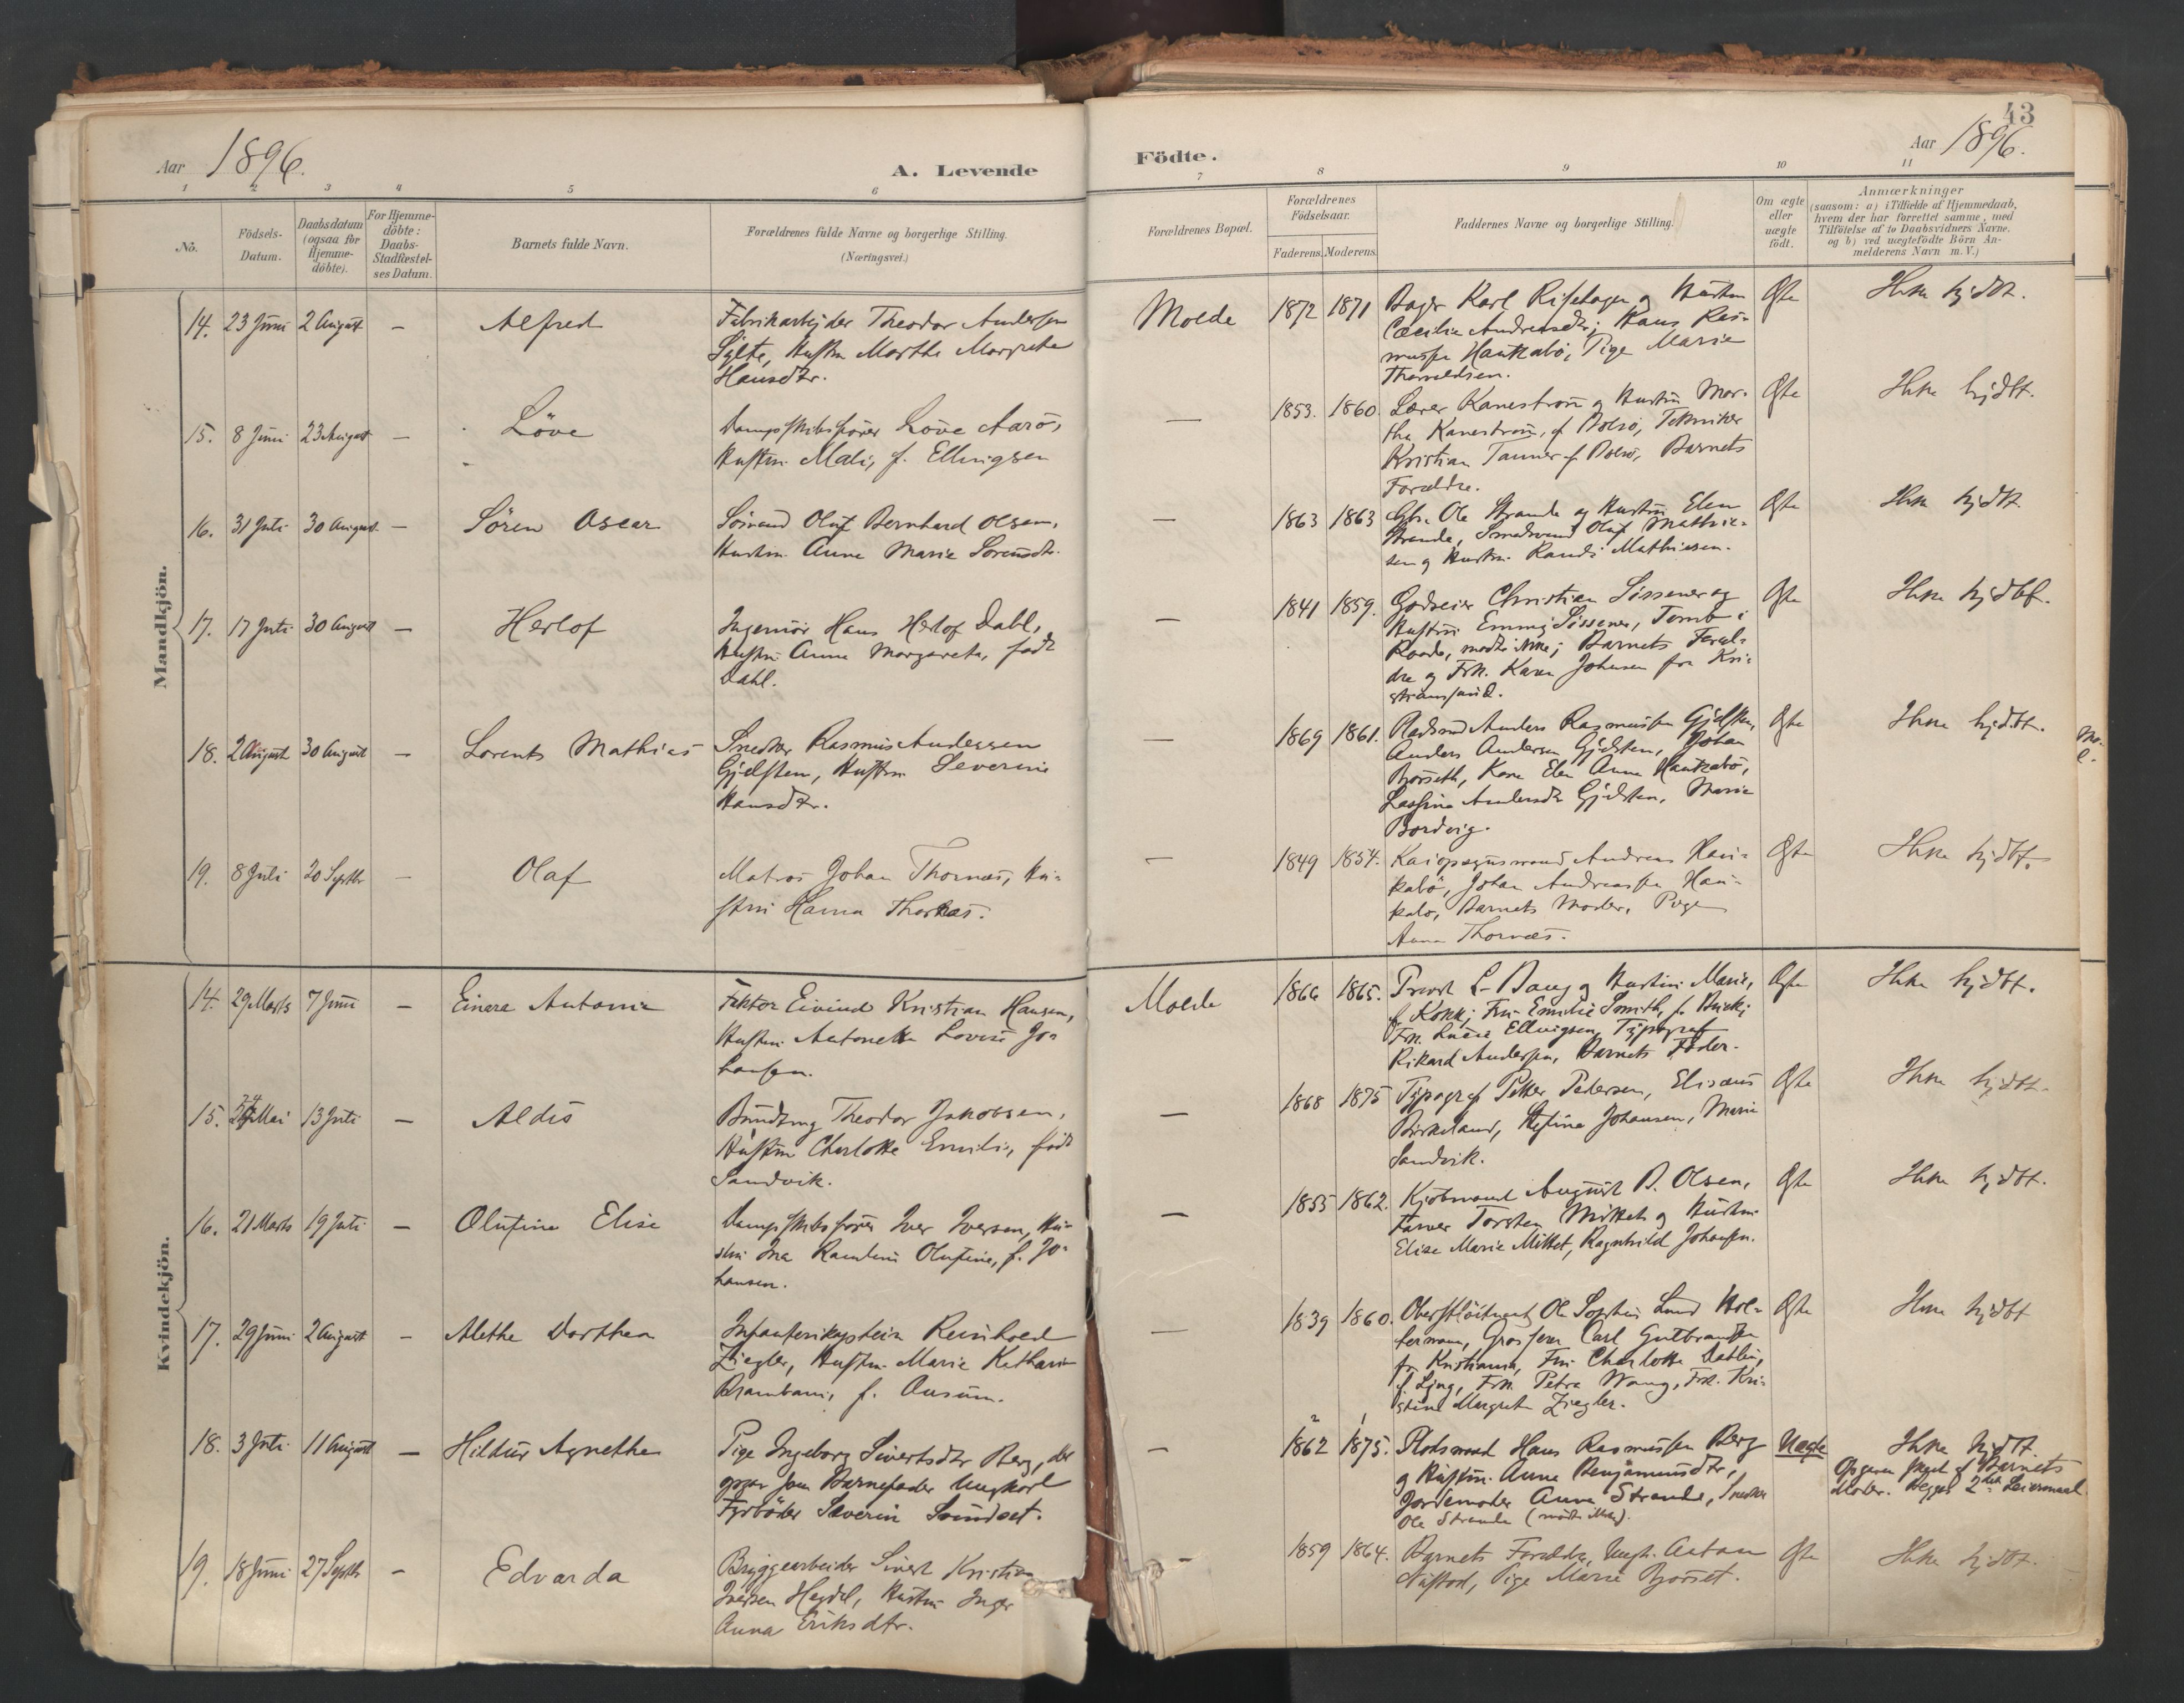 43
Aar 1896.
A. Levende
Födte.
Aar 1896.
1 2 3 4 5 6 7 8 9 10 11
No.
Födsels-
Datum.
Daabsdatum
(ogsaa for
Hjemme-
döbte).
For Hjemme-
döbte:
Daabs-
Stadfæstel-
ses Datum.
Barnets fulde Navn.
Forældrenes fulde Navne og borgerlige Stilling.
(Næringsvei.)
Forældrenes Bopæl.
Forældrenes
Födselsaar.
Faderens. Moderens.
Faddernes Navne og borgerlige Stilling.
Om ægte
eller
uægte
födt.
Anmærkninger
(saasom: a) i Tilfælde af Hjemmedaab,
hvem der har forrettet samme, med
Tilföielse af to Daabsvidners Navne,
og b) ved uægtefödte Börn An-
melderens Navn m.V.)
Mandkjön.
14. 23 Juni 2 August – Alfred
Fabrikarbejder Theodor Andersen
Sylte, Hustru Marthe Margrete
Hansdtr.
Molde 1872 1871
Bager Karl Risehagen og Hustru
Cæcilie Andreasdtr; Hans Ras-
mussen Haukabö, Pige Marie
Thorvaldsen.
Ægte Ikke hjdbt.
15. 8 Juni 23 August – Löve
Dampskibsförer Löve Aarö,
Hustru Mali, f. Ellingsen
— 1853. 1860.
Lærer Kanestrøm og Hustru Mar-
tha Kanestrøm, af Bolsö, Tekniker
Kristian Tanner af Bolsö, Barnets
Forældre.
Ægte Ikke hjdbt.
16. 31 Juli 30 August – Sören Oscar
Sömand Oluf Bernhard Olsen,
Hustru Anne Marie Sörensdtr.
— 1863 1863
Gbr. Ole Strande og Hustru Elen
Strande, Smedsvend Oluf Mathie-
sen og Hustru Randi Mathiesen.
Ægte Ikke hjdbt.
17. 17 Juli 30 August – Herlof
Ingeniör Hans Herlof Dahl,
Hustru Anna Margareta, född
Dahl.
— 1841 1859.
Godseier Christian Sissener og
Hustru Emmy Sissener, Tomb i
Raade, mødte ikke; Barnets Foræl-
dre og Frk. Karen Johnsen fra Kri-
stianssund.
Ægte Ikke hjdbt.
18. 2 August 30 August – Lorents Mathias
Snedker Rasmus Anderssen
Gjelsten, Hustru Severine
Hansdtr.
— 1869 1861.
Pladsmd Anders Rasmussen Gjelsten,
Anders Andersen Gjelsten, Johan
Bjørseth, Kone Elen Anne Haukabö,
Andersdtr Gjelsten, Marie
Bordvig.
Ægte Ikke hjdbt.
19. 8 Juli 20 Septbr – Olaf
Matros Johan Thornæs, Hu-
stru Hanna Thornæs.
— 1849 1854.
Kaiopsynsmand Andreas Hau-
kabö, Johan Andreassen Hau-
kabö, Barnets Moder, Pige
Anna Thornæs.
Ægte Ikke hjdbt.
Kvindekjön.
14. 29 Marts 7 Juni – Einara Antonie
Faktor Eivind Kristian Hansen,
Hustru Antonette Lovise Jo-
hansen.
Molde 1866 1865.
Provst L. Daug og Hustru Marie,
f. Kokk; Fru Emilie Smith,
Frk. Ellingsen, Typograf
Rikard Andersen, Barnets Fader.
Ægte Ikke hjdbt.
15. 24 Mai 13 Juli – Aldis
Bundtmg Theodor Jakobsen,
Hustru Charlotte Emilie, född
Sandvik.
— 1868 1875
Typograf Petter Pedersen, Elisæus
Birkeland, Johansen, Marie
Sandvik.
Ægte Ikke hjdbt.
16. 21 Marts 19 Juli – Olufine Elise
Dampskibsförer Iver Iversen, Hu-
stru Ina Randine Olufine, f. Jo-
hansen.
— 1855 1862.
Kjöbmand August B. Olsen,
Farver Torsten Mittet og Hustru
Elise Marie Mittet, Ragnhild Johansen.
Ægte Ikke hjdbt.
17. 29 Juni 2 August – Alethe Dorthea
Infanterikaptein Reinhold
Ziegler, Hustru Marie Katharine
f. Ausum.
— 1839 1860.
Oberstlöitnant Ole Sophus Lund Hol-
termann, Grosserer Carl Gulbransen
fr. Kristiania, Fru Charlotte Dahlin,
f. Ljng, Frk. Petra Wang, Frk. Kri-
stine Margrete Ziegler.
Ægte Ikke hjdbt
18. 3 Juli 11 August – Hildur Agnethe
Pige Ingeborg Sivertsdtr Berg, der
opgav som Barnefader Ungkarl
Fyrböder Severin Sundset.
— 2 1862 1 1875.
Pladsmand Hans Rasmussen Berg
og Hustru Anne Benjaminsdtr,
Jordemoder Anne Strande, Snedker
Ole Strande (mødte ikke).
Uægte Ikke hjdbt.
Opgaven skeet af Barnets
Moder. Begges 2det Leiermaal.
19. 18 Juni 27 Septb – Edvarda
Bryggearbeider Sivert Kristian
Iversen Hegdal, Hustru Inger
Anna Eriksdtr.
– 1859 1864.
Barnets Forældre, Ungk. Anton
Nustad, Pige Marie Bjørset.
Ægte Ikke hjdbt.